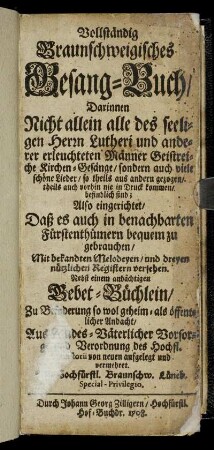 Vollständig
Braunschweigisches
Gesang-Buch/
Darinnen
Nicht allein alle des seeli-
gen Herrn Lutheri und ande-
rer erleuchteten Männer Geistrei-
che Kirchen-Gesänge/ sondern auch viele
schöne Lieder/ so theils aus andern gezogen/
theils auch vorhin nie in Druck kommen/
befindlich sind;
Also eingerichtet/
Daß es auch in benachbarten
Fürstenthümern bequem zu
gebrauchen/
Mit bekandten Melodeyen/ und dreyen
nützlichen Registern versehen.
Nebst einem andächtigen
Gebet-Büchlein/
Zu so wol geheim- als öffent-
licher Andacht/
Aus Landes-Väterlicher Vorsor-
Verordnung des Hochfl.
von neuen aufgelegt und
vermehret.
Hochfürstl. Braunschw. Lüneb.
Special-Privilegio.
Durch Johann Georg Zilligern/ Hochfürstl.
Hof-Buchdr. 1708.